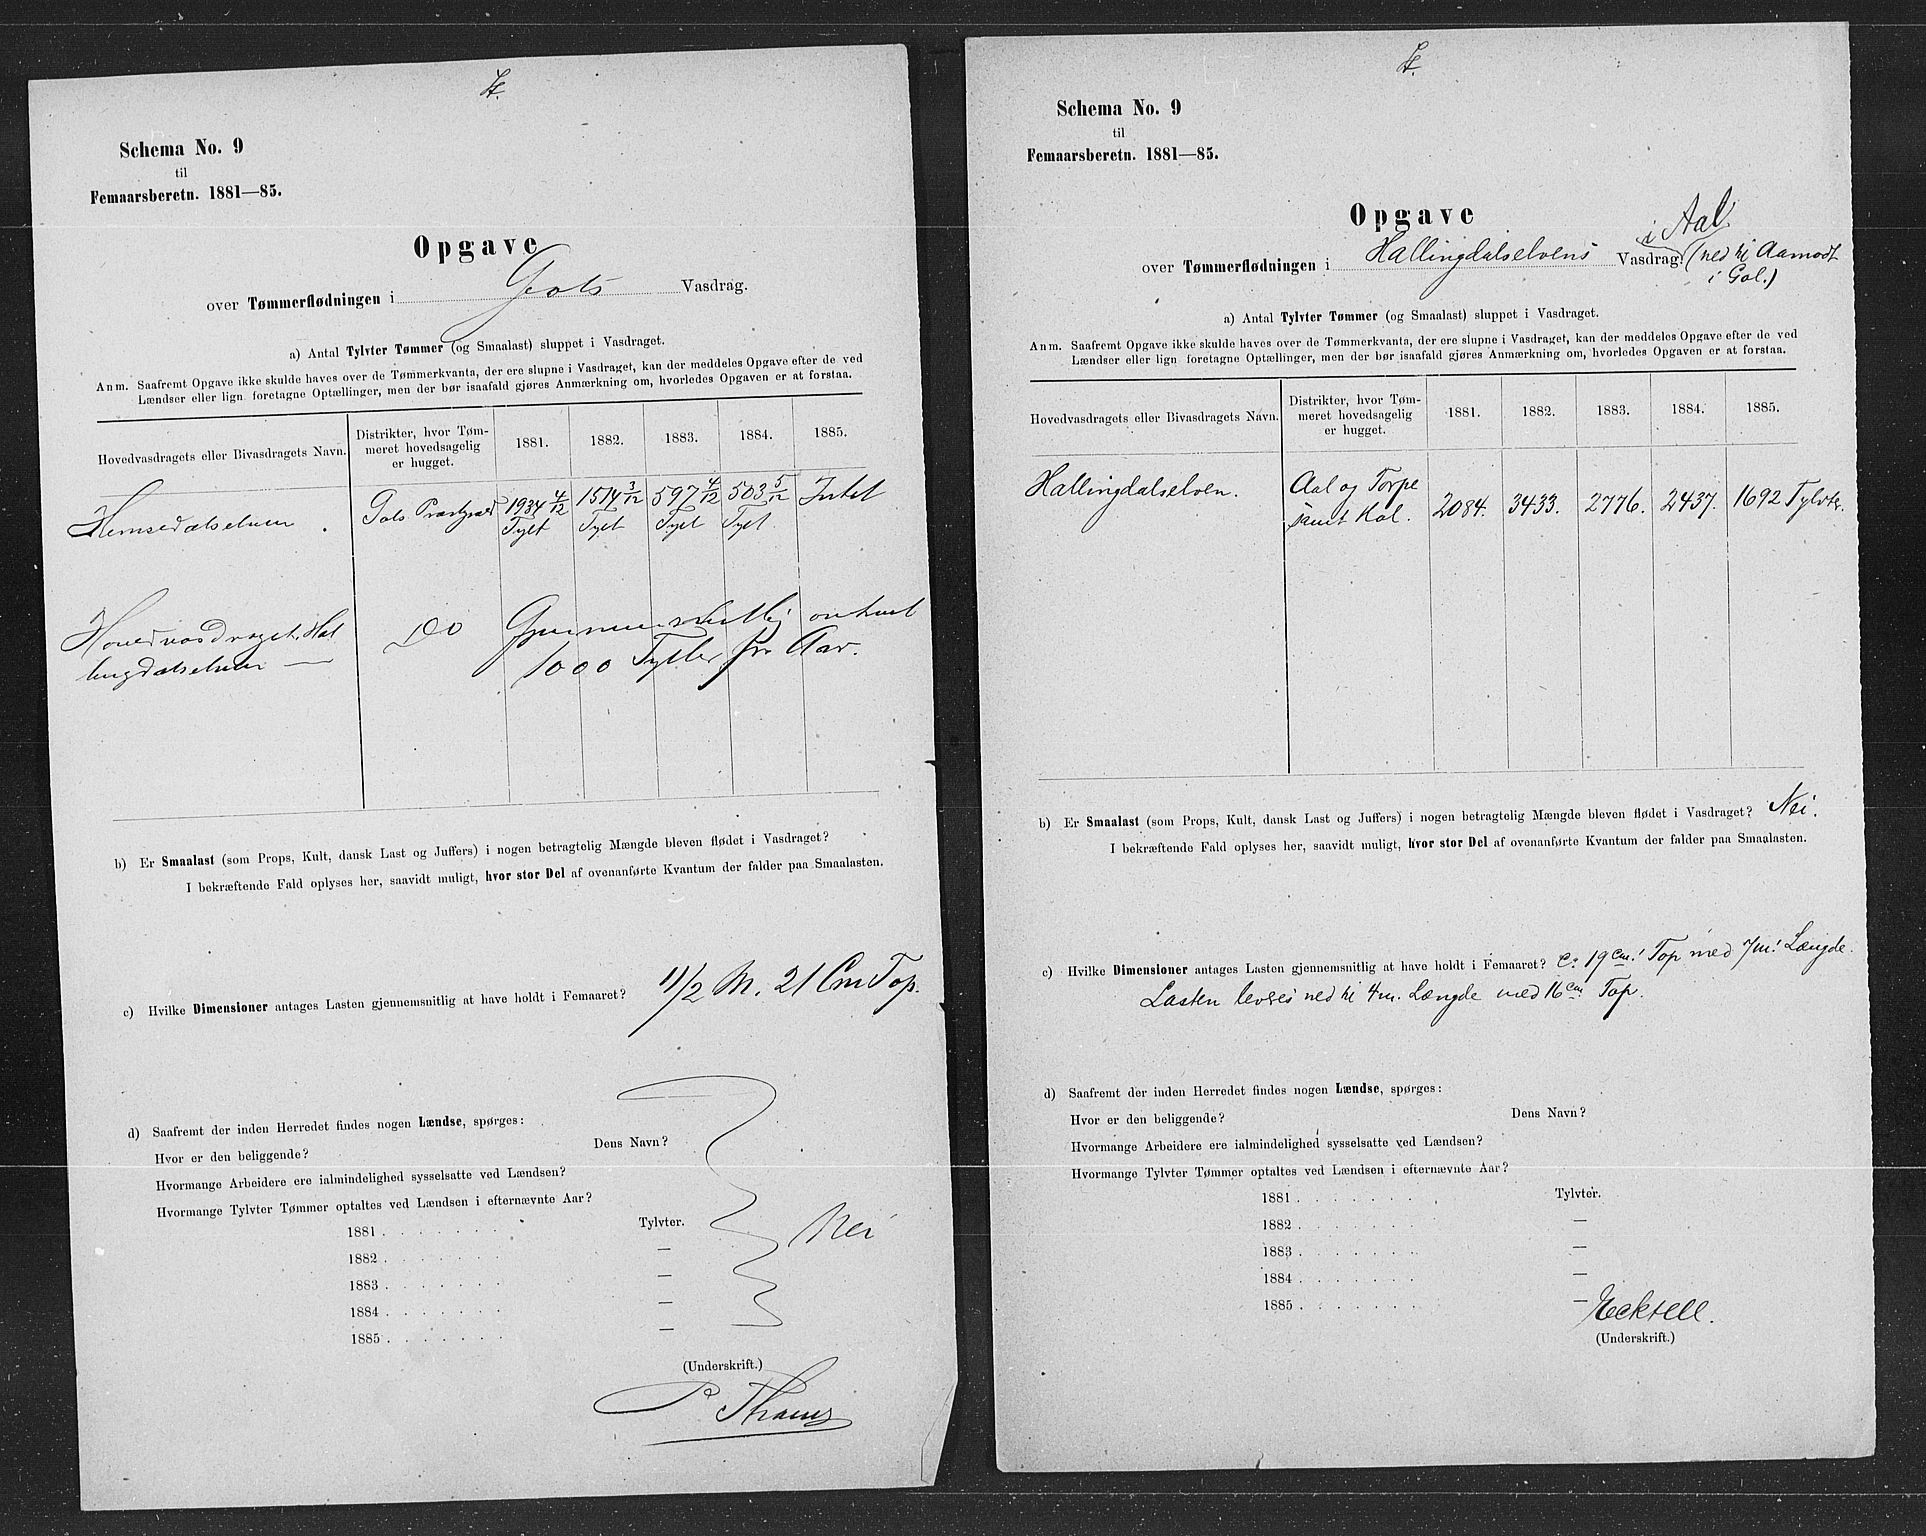 Schema No. 9
til
Femaarsberetn. 1881—85.
Opgave
over Tømmerflødningen i Gols Vasdrag.
a) Antal Tylvter Tømmer (og Smaalast) sluppet i Vasdraget.
Anm. Saafremt Opgave ikke skulde haves over de Tømmerkvanta, der ere slupne i Vasdraget, kan der meddeles Opgave efter de ved
Lændser eller lign foretagne Optællinger, men der bør isaafald gjøres Anmærkning om, hvorledes Opgaven er at forstaa.
Hovedvasdragets eller Bivasdragets Navn.
Distrikter, hvor Tøm-
meret hovedsagelig
er hugget.
1881. 1882. 1883. 1884. 1885.
Hemsedalselven. Gols Præstgjæld 1934 4/12 1514 3/12 597 4/12 503 5/12 Intet
Tylt Tylt Tylt Tylt
Hovedvasdraget Hal
lingdalselven — Do Gjennemsnitlig omtrent
1000 Tylter pr Aar.
b) Er Smaalast (som Props, Kult, dansk Last og Juffers) i nogen betragtelig Mængde bleven flødet i Vasdraget?
I bekræftende Fald oplyses her, saavidt muligt, hvor stor Del af ovenanførte Kvantum der falder paa Smaalasten.
c) Hvilke Dimensioner antages Lasten gjennemsnitlig at have holdt i Femaaret? 11/2 M. 21 Cm Top.
d) Saafremt der inden Herredet findes nogen Lændse, spørges:
Hvor er den beliggende? Dens Navn?
Hvormange Arbeidere ere ialmindelighed sysselsatte ved Lændsen?
Hvormange Tylvter Tømmer optaltes ved Lændsen i efternævnte Aar?
1881 . . . . . . . Tylvter.
1882 . . . . . . . —
1883 . . . . . . . —
1884 . . . . . . . —
1885 . . . . . . . —
Nei
(Underskrift.)
P Thams
Schema No. 9
til
Femaarsberetn. 1881—85.
Opgave
i Aal
over Tømmerflødningen i Hallingdalselvens Vasdrag. (ned til Aamodt
i Gol.)
a) Antal Tylvter Tømmer (og Smaalast) sluppet i Vasdraget.
Anm. Saafremt Opgave ikke skulde haves over de Tømmerkvanta, der ere slupne i Vasdraget, kan der meddeles Opgave efter de ved
Lændser eller lign foretagne Optællinger, men der bør isaafald gjøres Anmærkning om, hvorledes Opgaven er at forstaa.
Hovedvasdragets eller Bivasdragets Navn.
Distrikter, hvor Tøm-
meret hovedsagelig
er hugget.
1881. 1882. 1883. 1884. 1885.
Hallingdalselven. Aal og Torpe
samt Hol. 2084. 3433. 2776. 2437. 1692 Tylvter.
b) Er Smaalast (som Props, Kult, dansk Last og Juffers) i nogen betragtelig Mængde bleven flødet i Vasdraget? Nei.
I bekræftende Fald oplyses her, saavidt muligt, hvor stor Del af ovenanførte Kvantum der falder paa Smaalasten.
c) Hvilke Dimensioner antages Lasten gjennemsnitlig at have holdt i Femaaret? c: 19 cm. Top med 7 m. Længde.
Lasten leveres ned til 4 m. Længde med 16 cm Top.
d) Saafremt der inden Herredet findes nogen Lændse, spørges:
Hvor er den beliggende? Dens Navn?
Hvormange Arbeidere ere ialmindelighed sysselsatte ved Lændsen?
Hvormange Tylvter Tømmer optaltes ved Lændsen i efternævnte Aar?
1881 . . . . . . . Tylvter.
1882 . . . . . . . —
1883 . . . . . . . —
1884 . . . . . . . —
1885 . . . . . . . —
Ecksell.
(Underskrift.)